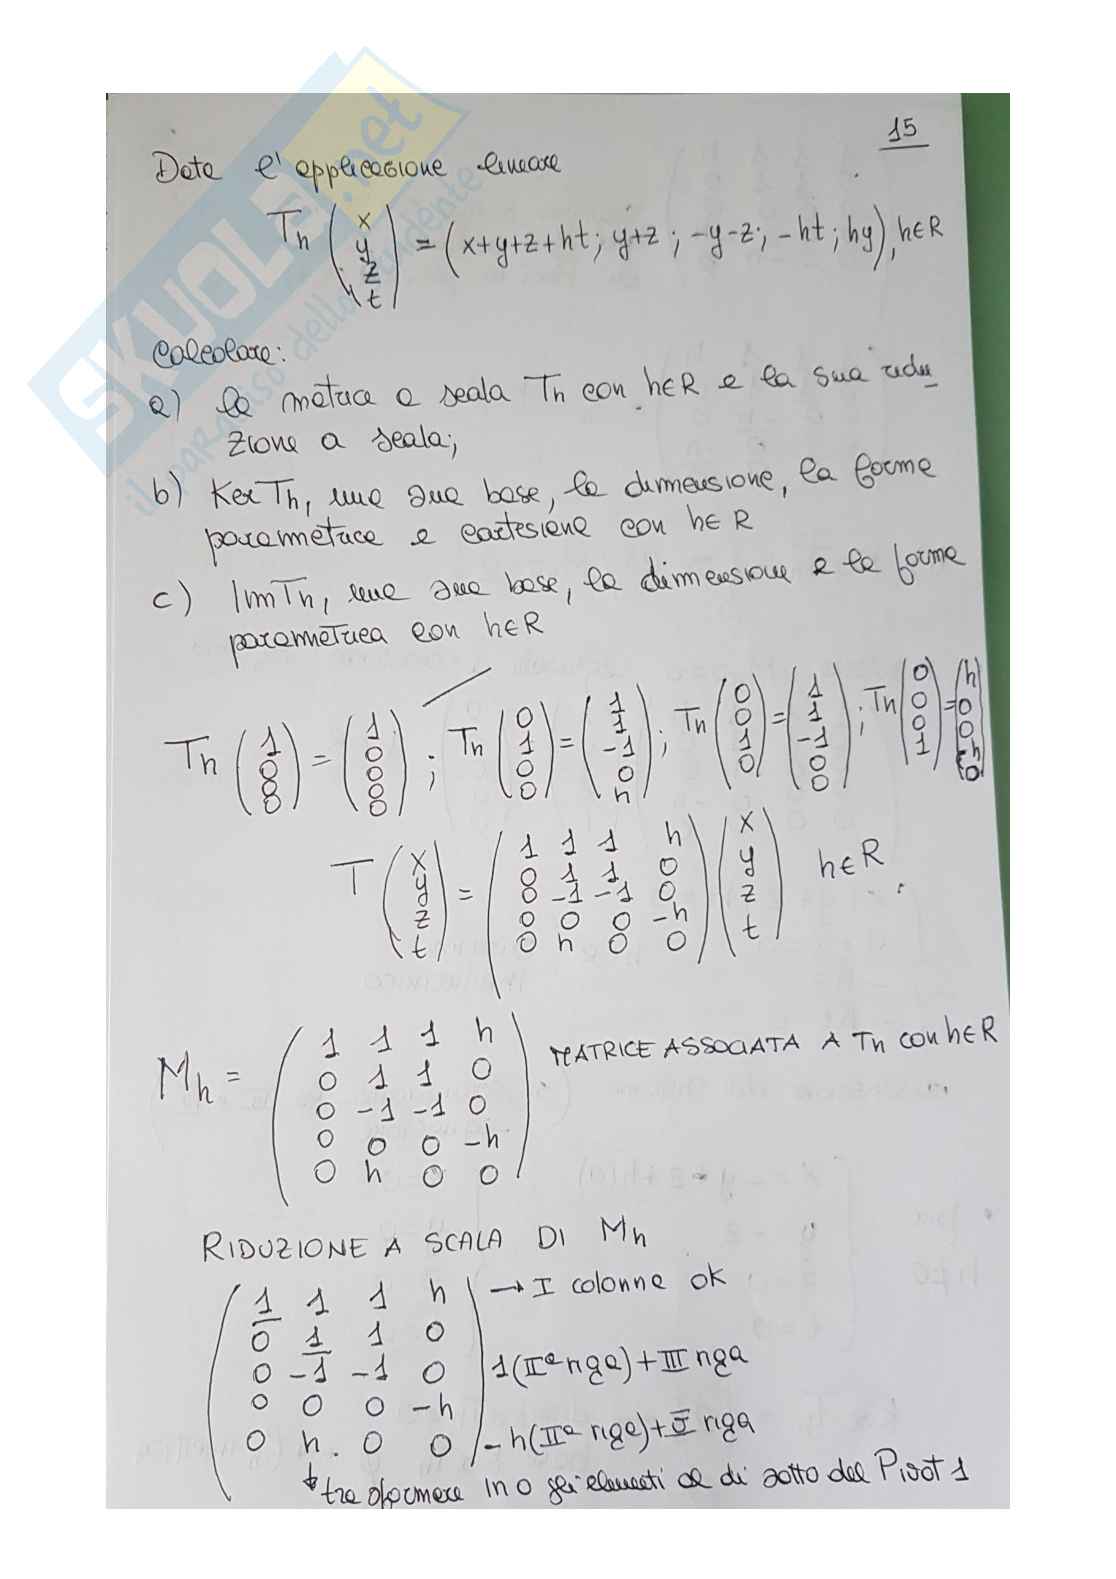 15
Data l'applicazione lineare
Th (x y z t) = (x+y+z+ht; y+z; -y-z; -ht; hy), h∈R
Calcolare:
a) la matrice a scala Th con h∈R e la sua ridu
zione a scala;
b) Ker Th, una sua base, la dimensione, la forma
parametrica e cartesiana con h∈R
c) ImTh, una sua base, la dimensione e la forma
parametrica con h∈R
Th (1 0 0 0) = (1 0 0 0 0) ; Th (0 1 0 0) = (1 1 -1 0 h) ; Th (0 0 1 0) = (1 1 -1 0 0) ; Th (0 0 0 1) = (h 0 0 -h 0)
T (x y z t) = (1 1 1 h
0 1 1 0
0 -1 -1 0
0 0 0 -h
0 h 0 0) (x y z t) h∈R
Mh = (1 1 1 h
0 1 1 0
0 -1 -1 0
0 0 0 -h
0 h 0 0) MATRICE ASSOCIATA A Th con h∈R
RIDUZIONE A SCALA DI Mh
1 1 1 h → I colonna ok
0 1 1 0
0 -1 -1 0 1(IIa riga)+III riga
0 0 0 -h
0 h 0 0 -h(IIa riga)+V riga
↓ trasformare in 0 gli elementi al di sotto del Pivot 1
SKUOLA.net
il paradiso dello studente